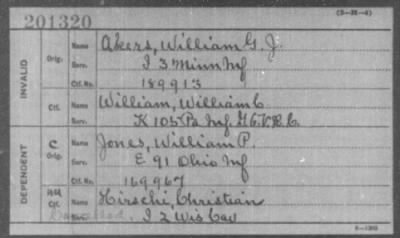 201320
(3-25-4)
INVALID
Orig.
Name Akers, William G. J.
Serv. I 3 Minn Inf
Ctf. No. 189913
Ctf.
Name William, William C
Serv. K 105 Pa Inf.
DEPENDENT
C
Orig.
Name Jones, William P.
Serv. E 91 Ohio Inf
Ctf. No. 169967
Ctf.
Name Hirschi, Christian
Serv. I 2 Wis Cav